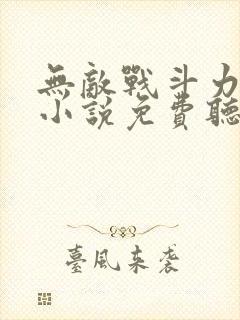 無敵戰斗力
小說免費聽
臺風来袭